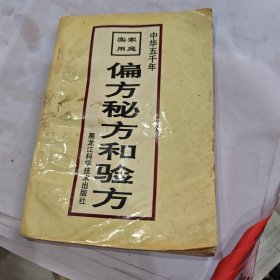 中华五千年
家庭
实用
偏方秘方和验方
黑龙江科学技术出版社